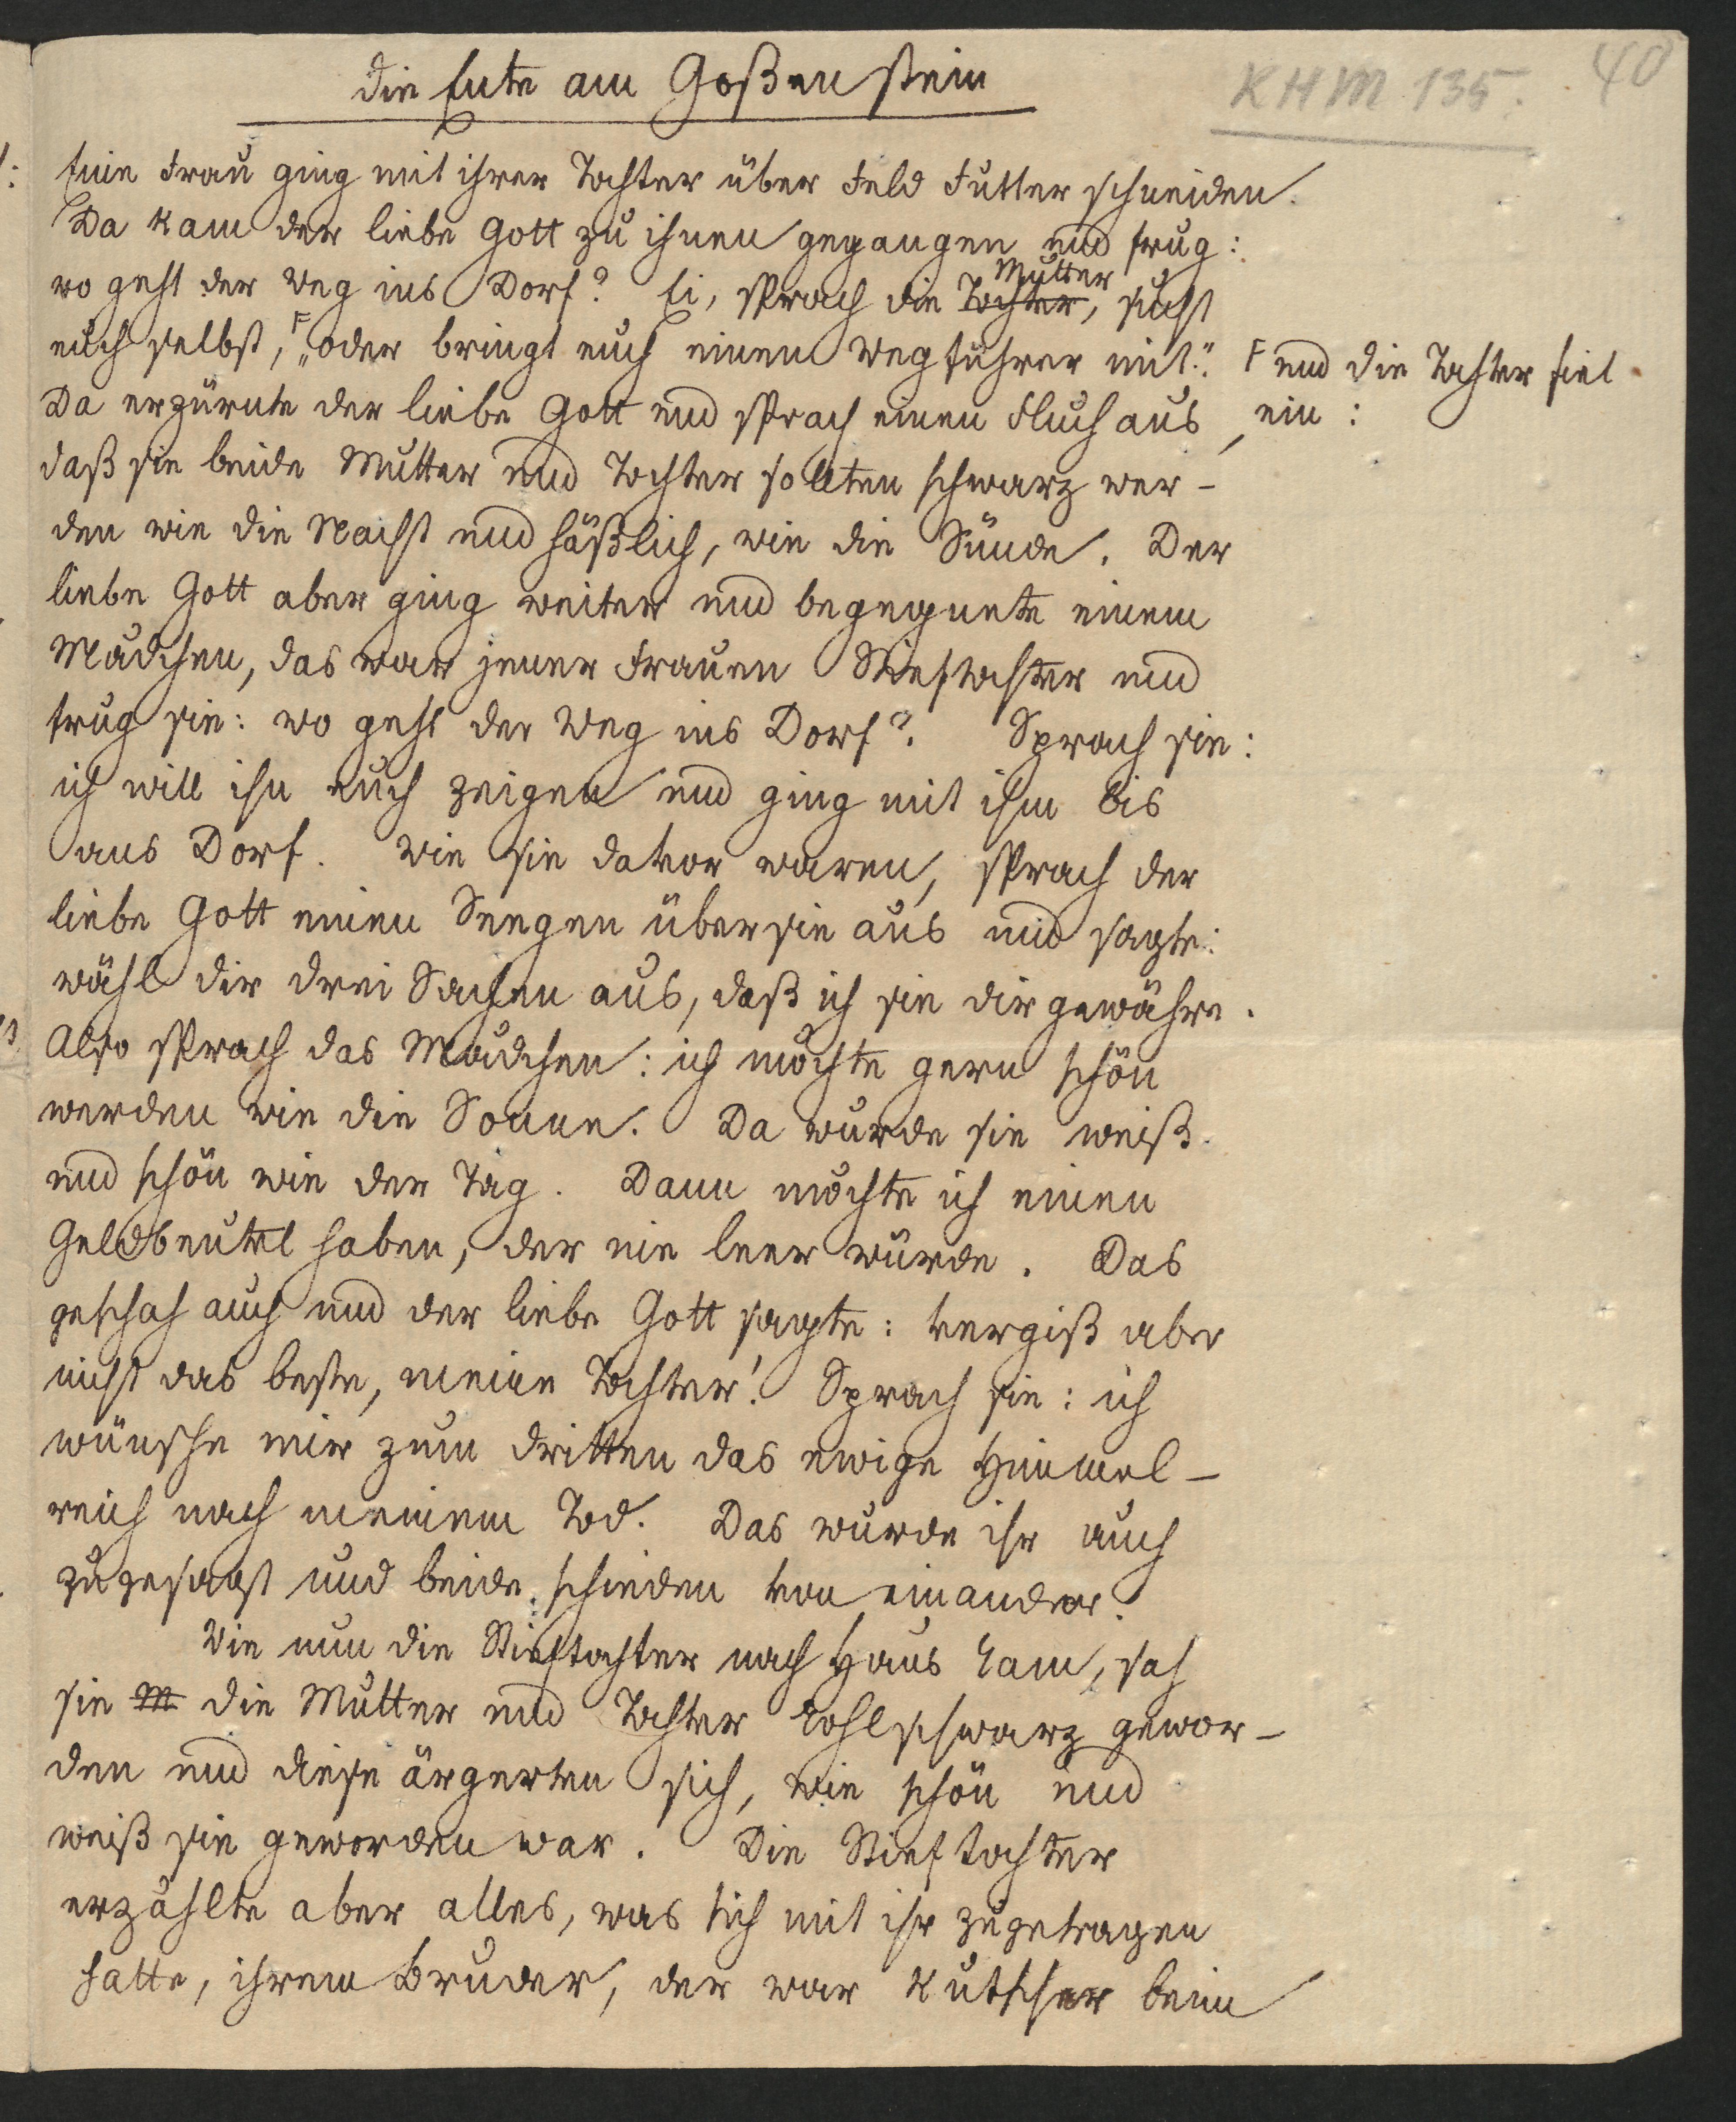 die Ente am Goßenstein
KHM 135.
40
Eine Frau ging mit ihrer Tochter über Feld Futter schneiden.
Da kam der liebe Gott zu ihnen gegangen und frug:
wo geht der Weg ins Dorf? Ei, sprach die Tochter, sucht
Mutter
euch selbst, F „oder bringt euch einen Wegführer mit."
F und die Tochter fiel
ein:
Da erzürnte der liebe Gott und sprach einen Fluch aus,
daß sie beide Mutter und Tochter sollten schwarz wer-
den wie die Nacht und häßlich, wie die Sünde. Der
liebe Gott aber ging weiter und begegnete einem
Mädchen, das war jener Frauen Stieftochter und
frug sie: wo geht der Weg ins Dorf? Sprach sie:
ich will ihn euch zeigen und ging mit ihm bis
ans Dorf. Wie sie davor waren, sprach der
liebe Gott einen Seegen über sie aus und sagte:
wähl dir drei Sachen aus, daß ich sie dir gewähre.
Also sprach das Mädchen: ich möchte gern schön
werden wie die Sonne. Da wurde sie weiß
und schön wie der Tag. Dann möchte ich einen
Geldbeutel haben, der nie leer würde. Das
geschah auch und der liebe Gott sagte: vergiß aber
nicht das beste, meine Tochter! Sprach sie: ich
wünsche mir zum dritten das ewige Himmel-
reich nach meinem Tod. Das wurde ihr auch
zugesagt und beide schieden von einander.
Wie nun die Stieftochter nach Haus kam, sah
sie M die Mutter und Tochter kohlschwarz gewor-
den und diese ärgerten sich, wie schön und
weiß sie geworden war. Die Stieftochter
erzählte aber alles, was sich mit ihr zugetragen
hatte, ihrem Bruder, der war Kutscher beim